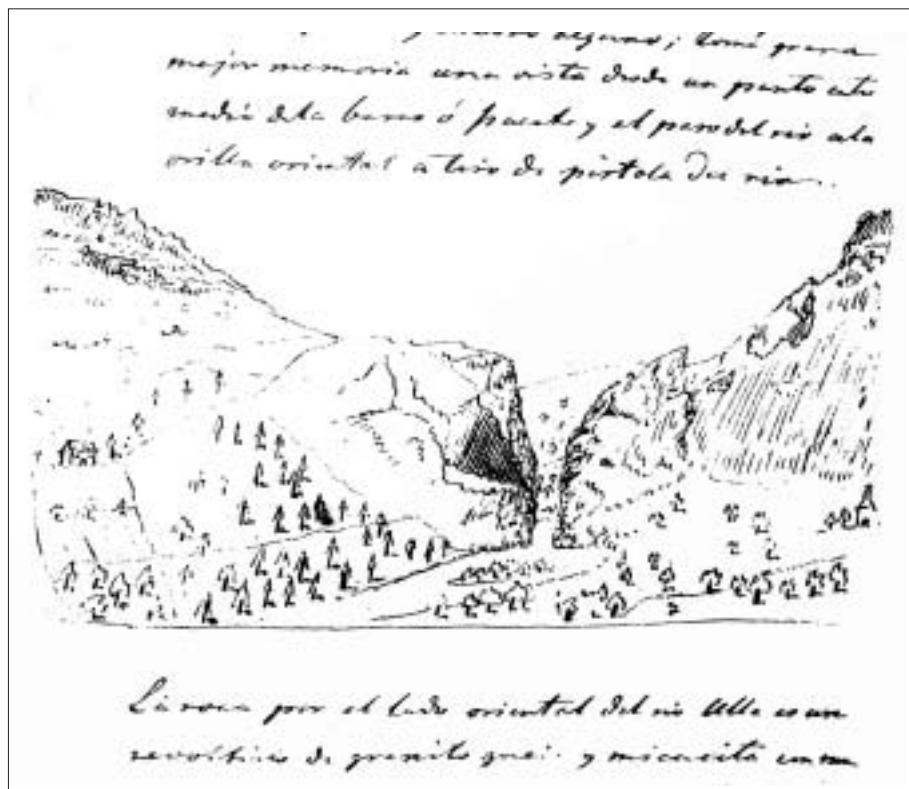 alguno; tomé para
mejor memoria una vista desde un punto
media de la barca ó puente y el paso del rio a la
orilla oriental a tiro de pistola del rio.
La roca por el lado oriental del rio Ulla es un
revoltizo de granito gnei. y micacita en